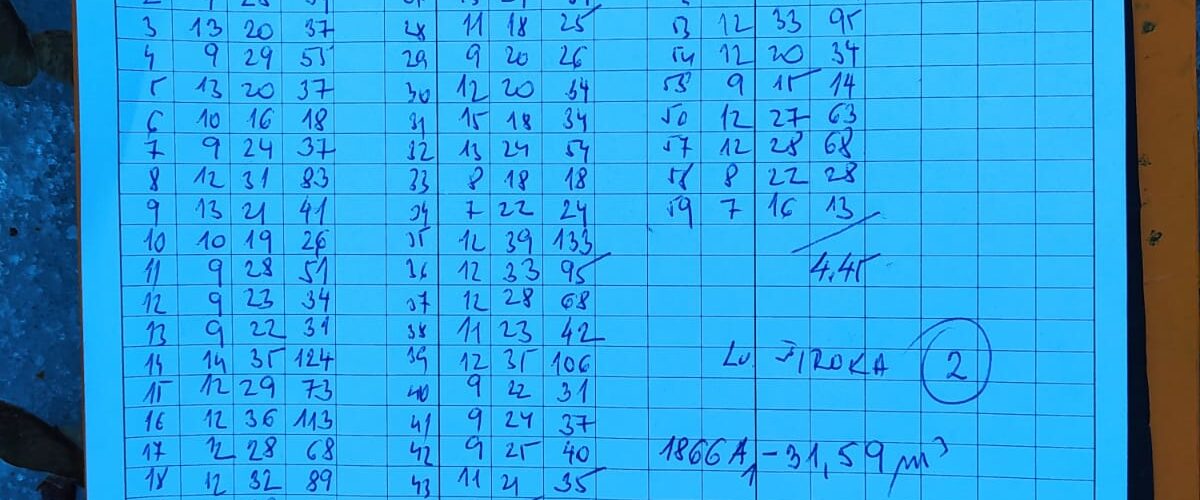 3 13 20 37 28 11 18 25 53 12 33 95
4 9 29 55 29 9 20 26 54 12 20 34
5 13 20 37 30 12 20 34 55 9 15 14
6 10 16 18 31 15 18 34 56 12 27 63
7 9 24 37 32 13 24 54 57 12 28 68
8 12 31 83 33 8 18 18 58 8 22 28
9 13 21 41 34 7 22 24 59 7 16 13
10 10 19 26 35 12 39 133
11 9 28 51 36 12 33 95 4,45
12 9 23 34 37 12 28 68
13 9 22 31 38 11 23 42
14 14 35 124 39 12 35 106 ŠIROKA 2
15 12 29 73 40 9 22 31
16 12 36 113 41 9 24 37
17 12 28 68 42 9 25 40 1866A - 31,59 m³
18 12 32 89 43 11 21 35